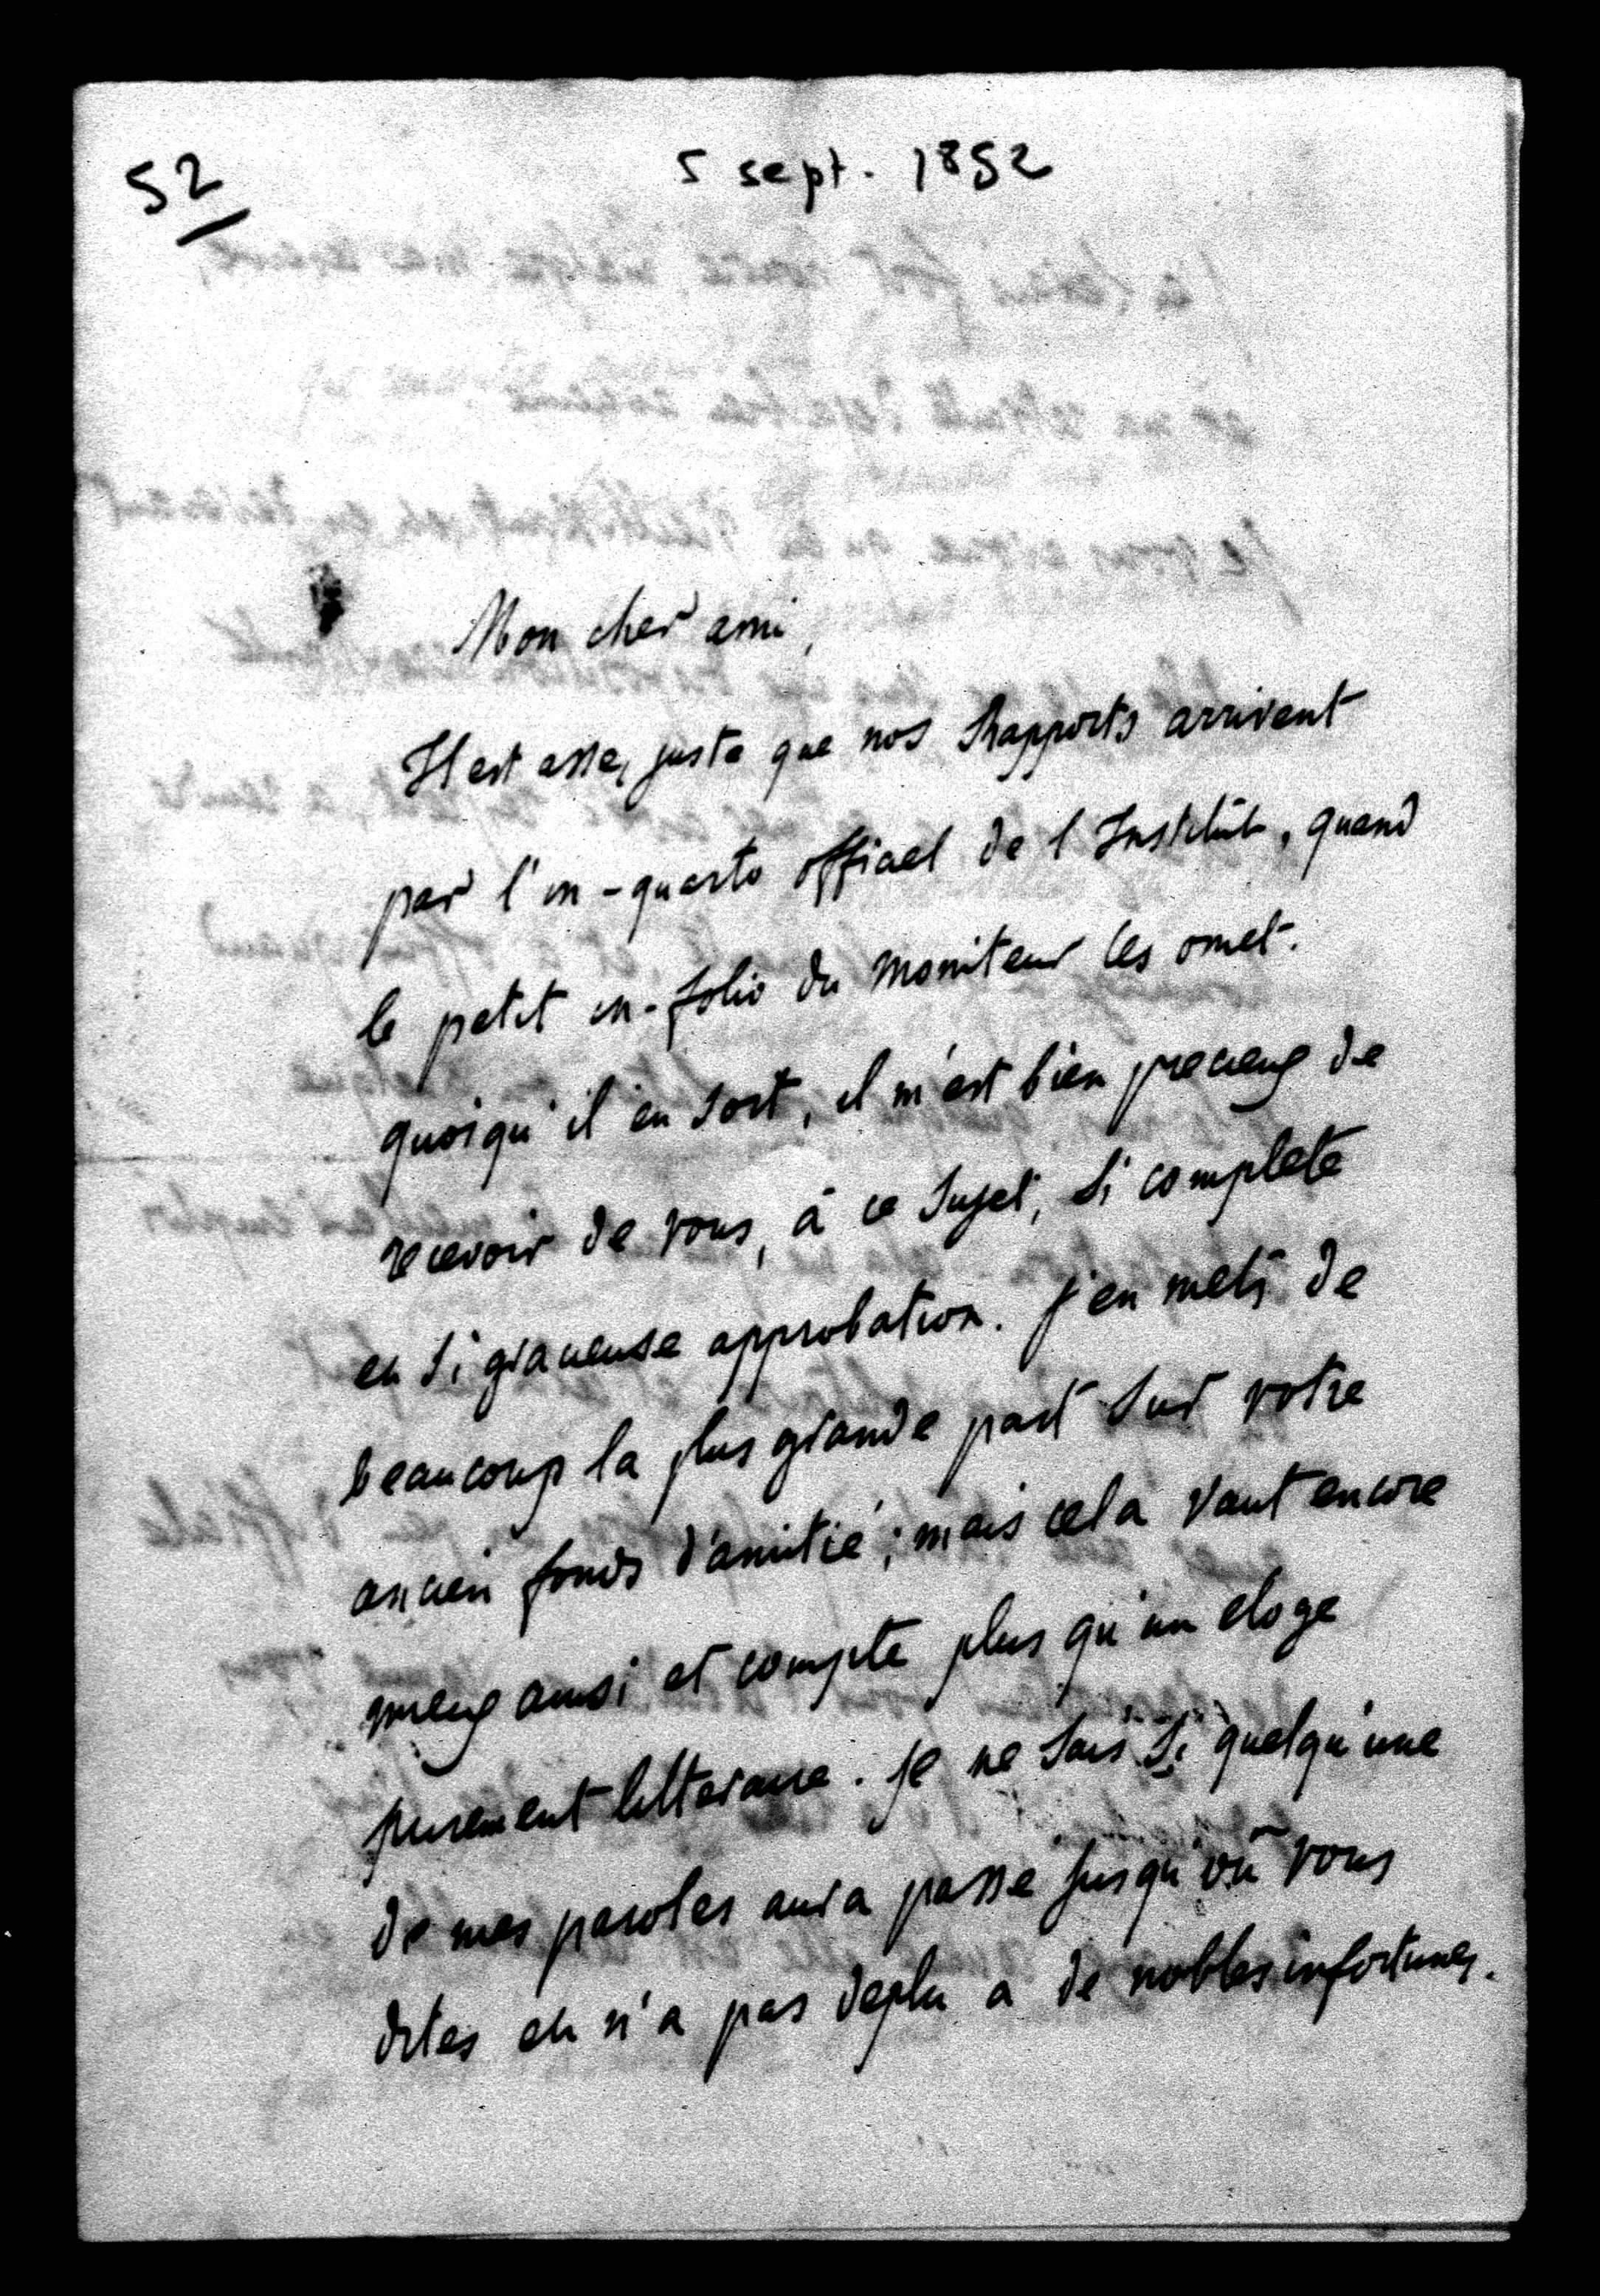 52
5 sept. 1852
Mon cher ami,
Il est assez juste que nos Rapports arrivent
par l'in-quarto officiel de l'Institut, quand
le petit in-folio du Moniteur les omet.
quoiqu'il en soit, il m'est bien precieux de
recevoir de vous, à ce sujet, si complete
et si gracieuse approbation. J'en mets de
beaucoup la plus grande part sur votre
ancien fonds d'amitié; mais cela vaut encore
mieux ainsi et compte plus qu'un eloge
purement litteraire. Je ne sais si quelqu'une
de mes paroles aura passe jusqu'où vous
dites et n'a pas deplu a de nobles infortunes.